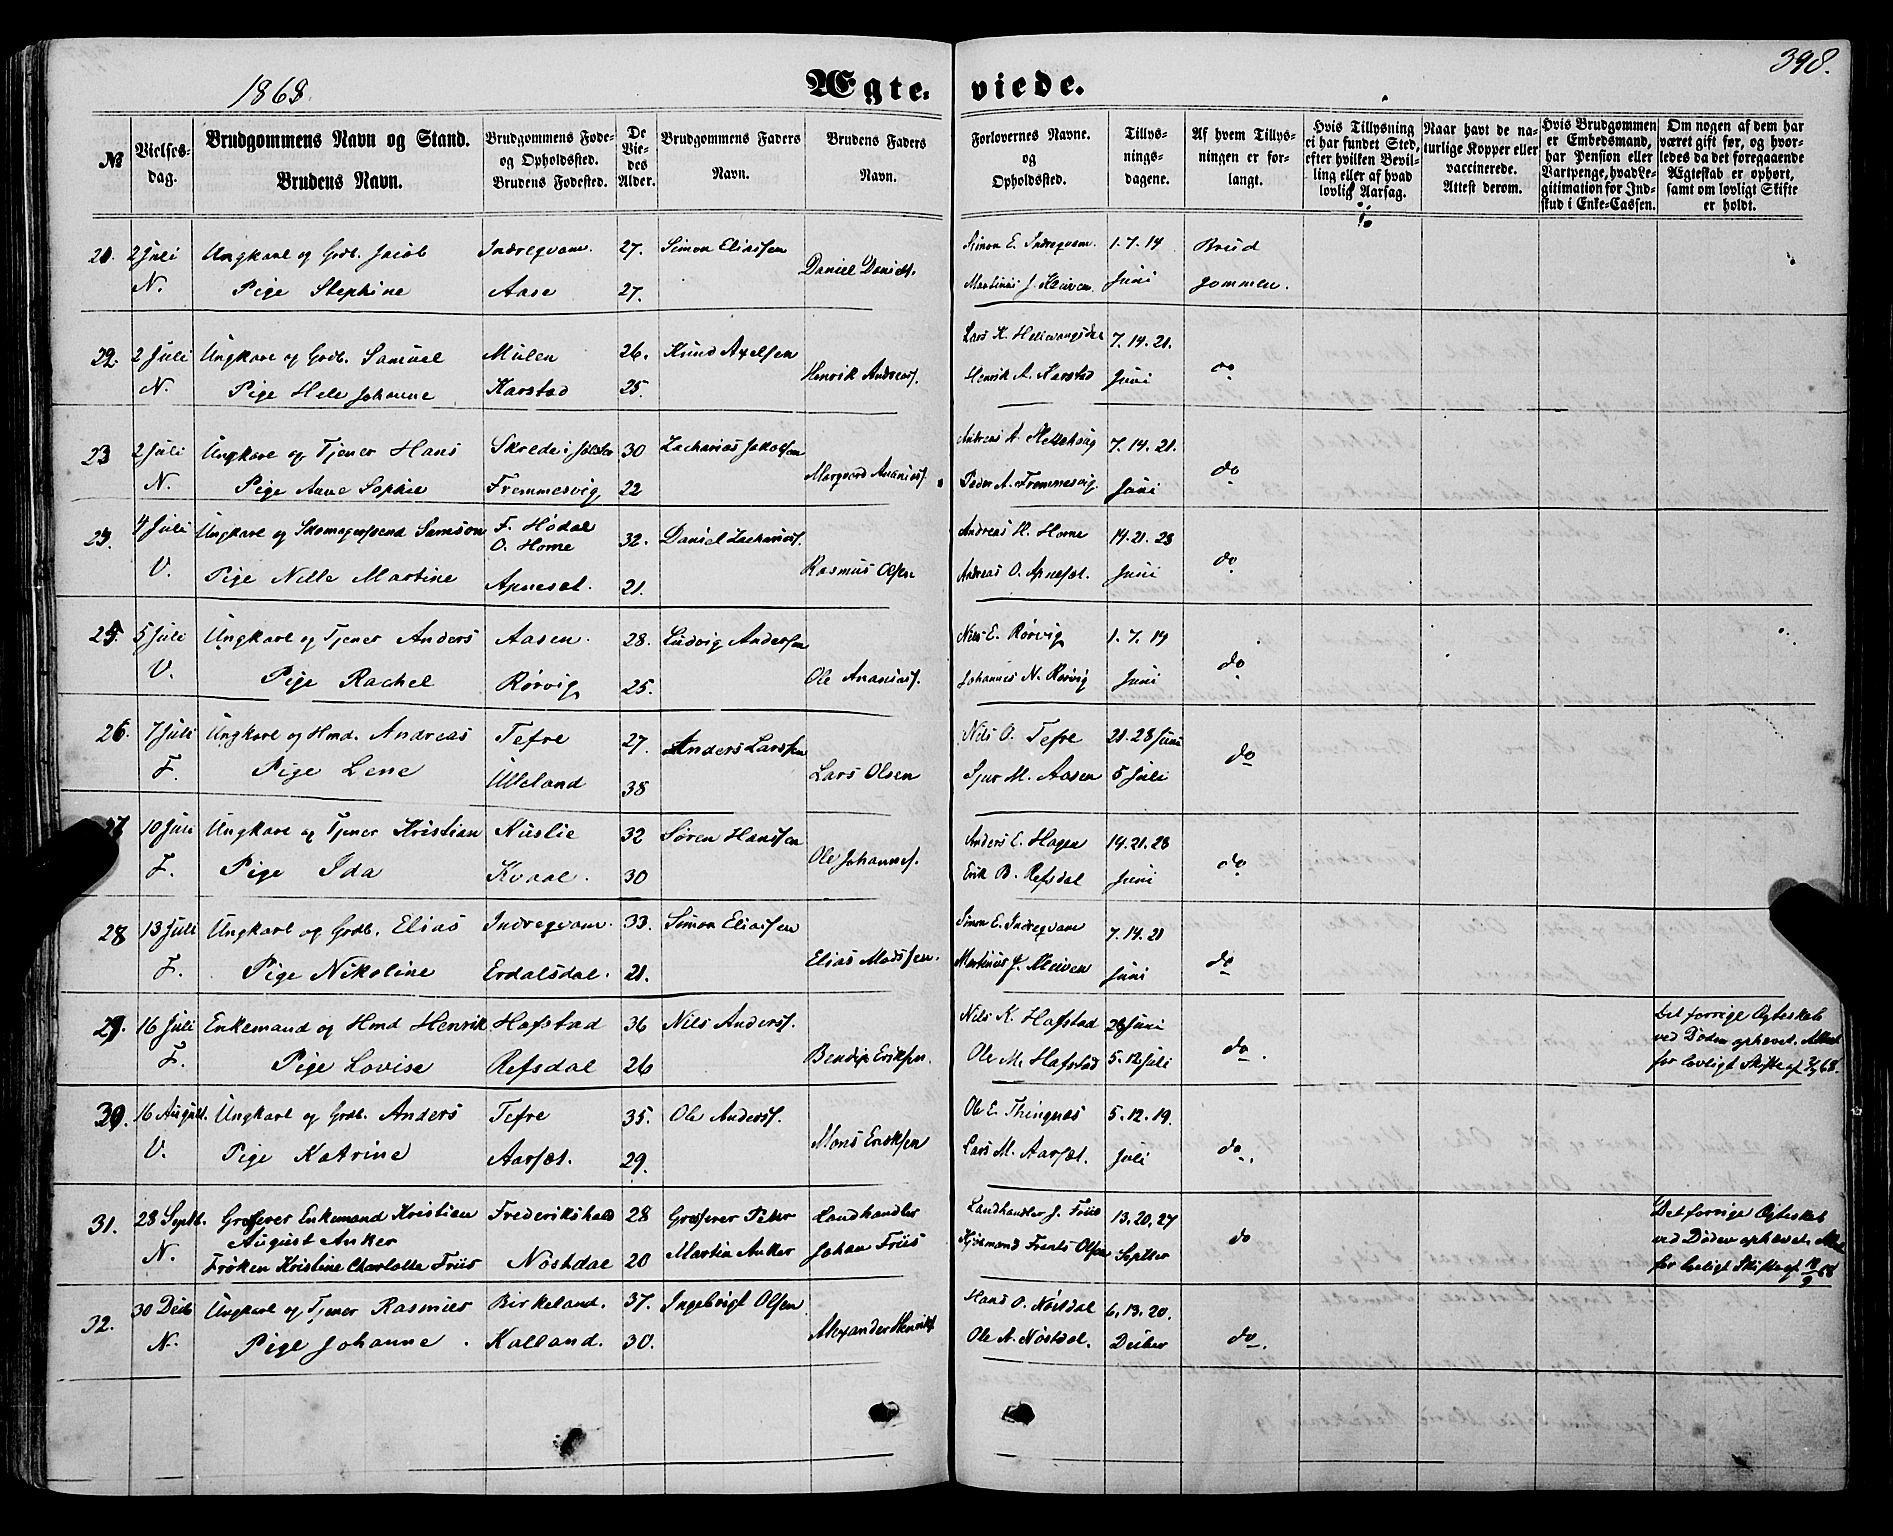 1868.
Ægte- viede.
398.
№
Vielses-
dag.
Brudgommens Navn og Stand.
Brudens Navn.
Brudgommens Føde-
og Opholdssted.
Brudens Fødested.
De
Vie-
des
Alder.
Brudgommens Faders
Navn.
Brudens Faders
Navn.
Forlovernes Navne.
og
Opholdssted.
Tillys-
nings-
dagene.
Af hvem Tillys-
ningen er for-
langt.
Hvis Tillysning
ei har fundet Sted,
efter hvilken Bevil-
ling eller af hvad
lovlig Aarsag.
Naar havt de na-
turlige Kopper eller
vaccinerede.
Attest derom.
Hvis Brudgommen
er Embedsmand,
har Pension eller
Vartpenge, hvad Le-
gitimation for Ind-
skud i Enke-Cassen.
Om nogen af dem har
været gift før, og hvor-
ledes da det foregaaende
Ægteskab er ophørt,
samt om lovligt Skifte
er holdt.
21. 2 Juli Ungkarl og Grdb. Jacob Indregvam. 27. Simon Eliassen Simon E. Indregvam. 1. 7. 14 Brud
Daniel Danielss.
N. Pige Stephine Aase 27. Martinus J. Juni gommen.
22. 2 Juli Ungkarl og Grdb. Samuel Mulen 26. Knud Axelsen Lars K. 7. 14. 21.
Henrik Andreass. do
N. Pige Hele Johanne Karstad 25. Henrik A. Karstad Juni
23 2 Juli Ungkarl og Tjener Hans Skrede i Jølster 30 Zacharias Jakobsen Andreas A. 7. 14. 21.
Ananiass. do
N. Pige Anne Sophie Frommesvig 22 Peder A. Frommesvig. Juni
24. 4 Juli Ungkarl og Skomagersvend Samson F. Hødal
O. Horne 32. Daniel Zachariass. Andreas R. Horne 14. 21. 28
Rasmus Olsen do
V. Pige Nille Martine Apneset. 21. Andreas O. Apneset. Juni
25. 5 Juli Ungkarl og Tjener Anders Aasen. 28. Ludvig Andersen Nils E. Rørvig 1. 7. 14
Ole Ananiass. do
V. Pige Rachel Rørvig 25. Johannes N. Rørvig Juni
26. 7 Juli Ungkarl og Hmd. Andreas Tefre 27. Anders Larssen Nils O. Tefre 21. 28 Juni
Lars Olsen do
F. Pige Lene Ulleland 38 Sjur M. Aasen 5 Juli
27 10 Juli Ungkarl og Tjener Kristian Kuslie 32 Søren Hanssen Anders E. Hagen 14. 21. 28
Ole Johanness. do
F. Pige Ida Kvaal. 30 Erik B. Refsdal Juni
28 13 Juli Ungkarl og Grdb. Elias Indregvam. 33. Simon Eliassen Simon E. Indregvam 7. 14. 21
Elias Madssen. do
F. Pige Nikoline Erdalsdal. 21. Martinus J. Juni
29. 16 Juli Enkemand og Hmd Henrik Hafstad 36 Nils Anderss. Nils K. Hafstad 28 Juni Det forrige Ægteskab
ved Døden ophævet. Attest
Bendix Eriksen. do.
F. Pige Lovise Refsdal 26 Ole M. Hafstad 5. 12 Juli for lovligt Skifte af
30. 16 August. Ungkarl og Grdb. Anders Tefre 35. Ole Anderss. Ole E. Thingnæs 5. 12. 19.
Mons Eriksen do.
V. Pige Katrine Aarset. 29. Lars M. Aarset. Juli
31. 28 Septb. Grosserer Enkemand Kristian Frederikshald 28 Grosserer Peter Landhandler Landhandler J. Friis 13, 20, 27 Det forrige Ægteskab
August Anker ved Døden ophævet. Attest
N. Frøken Kristine Charlotte Friis Nøstdal 20 Martin Anker Johan Friis Frents Olsen Septber do for lovligt Skifte af 18/9 68
32. 30 Decb Ungkarl og Tjener Rasmus Birkeland. 37. Ingebrigt Olsen Hans O. Nøstdal 6, 13. 20.
Alexander Henriks.
N. Pige Johanne. Kalland. 30. Ole A. Nøstdal. Decber do.